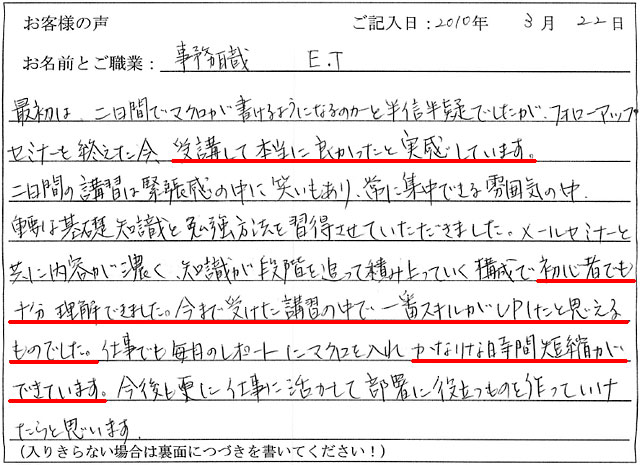 お客様の声 ご記入日：2010年 3月 22日
お名前とご職業： 事務職 E.T
最初は、二日間でマクロが書けるようになるのかーと半信半疑でしたが、フォローアップ
セミナーを終えた今、受講して本当に良かったと実感しています。
二日間の講習は緊張感の中に笑いもあり、常に集中できる雰囲気の中、
重要な基礎知識と勉強方法を習得させていただきました。メールセミナーと
共に内容が濃く、知識が段階を追って積み上っていく構成で初心者でも
十分理解できました。今まで受けた講習の中で一番スキルがUPしたと思える
ものでした。仕事でも毎日のレポートにマクロを入れ、かなりな時間短縮が
できています。今後も更に仕事に活かして部署に役立つものを作っていけ
たらと思います。
(入りきらない場合は裏面につづきを書いてください！)